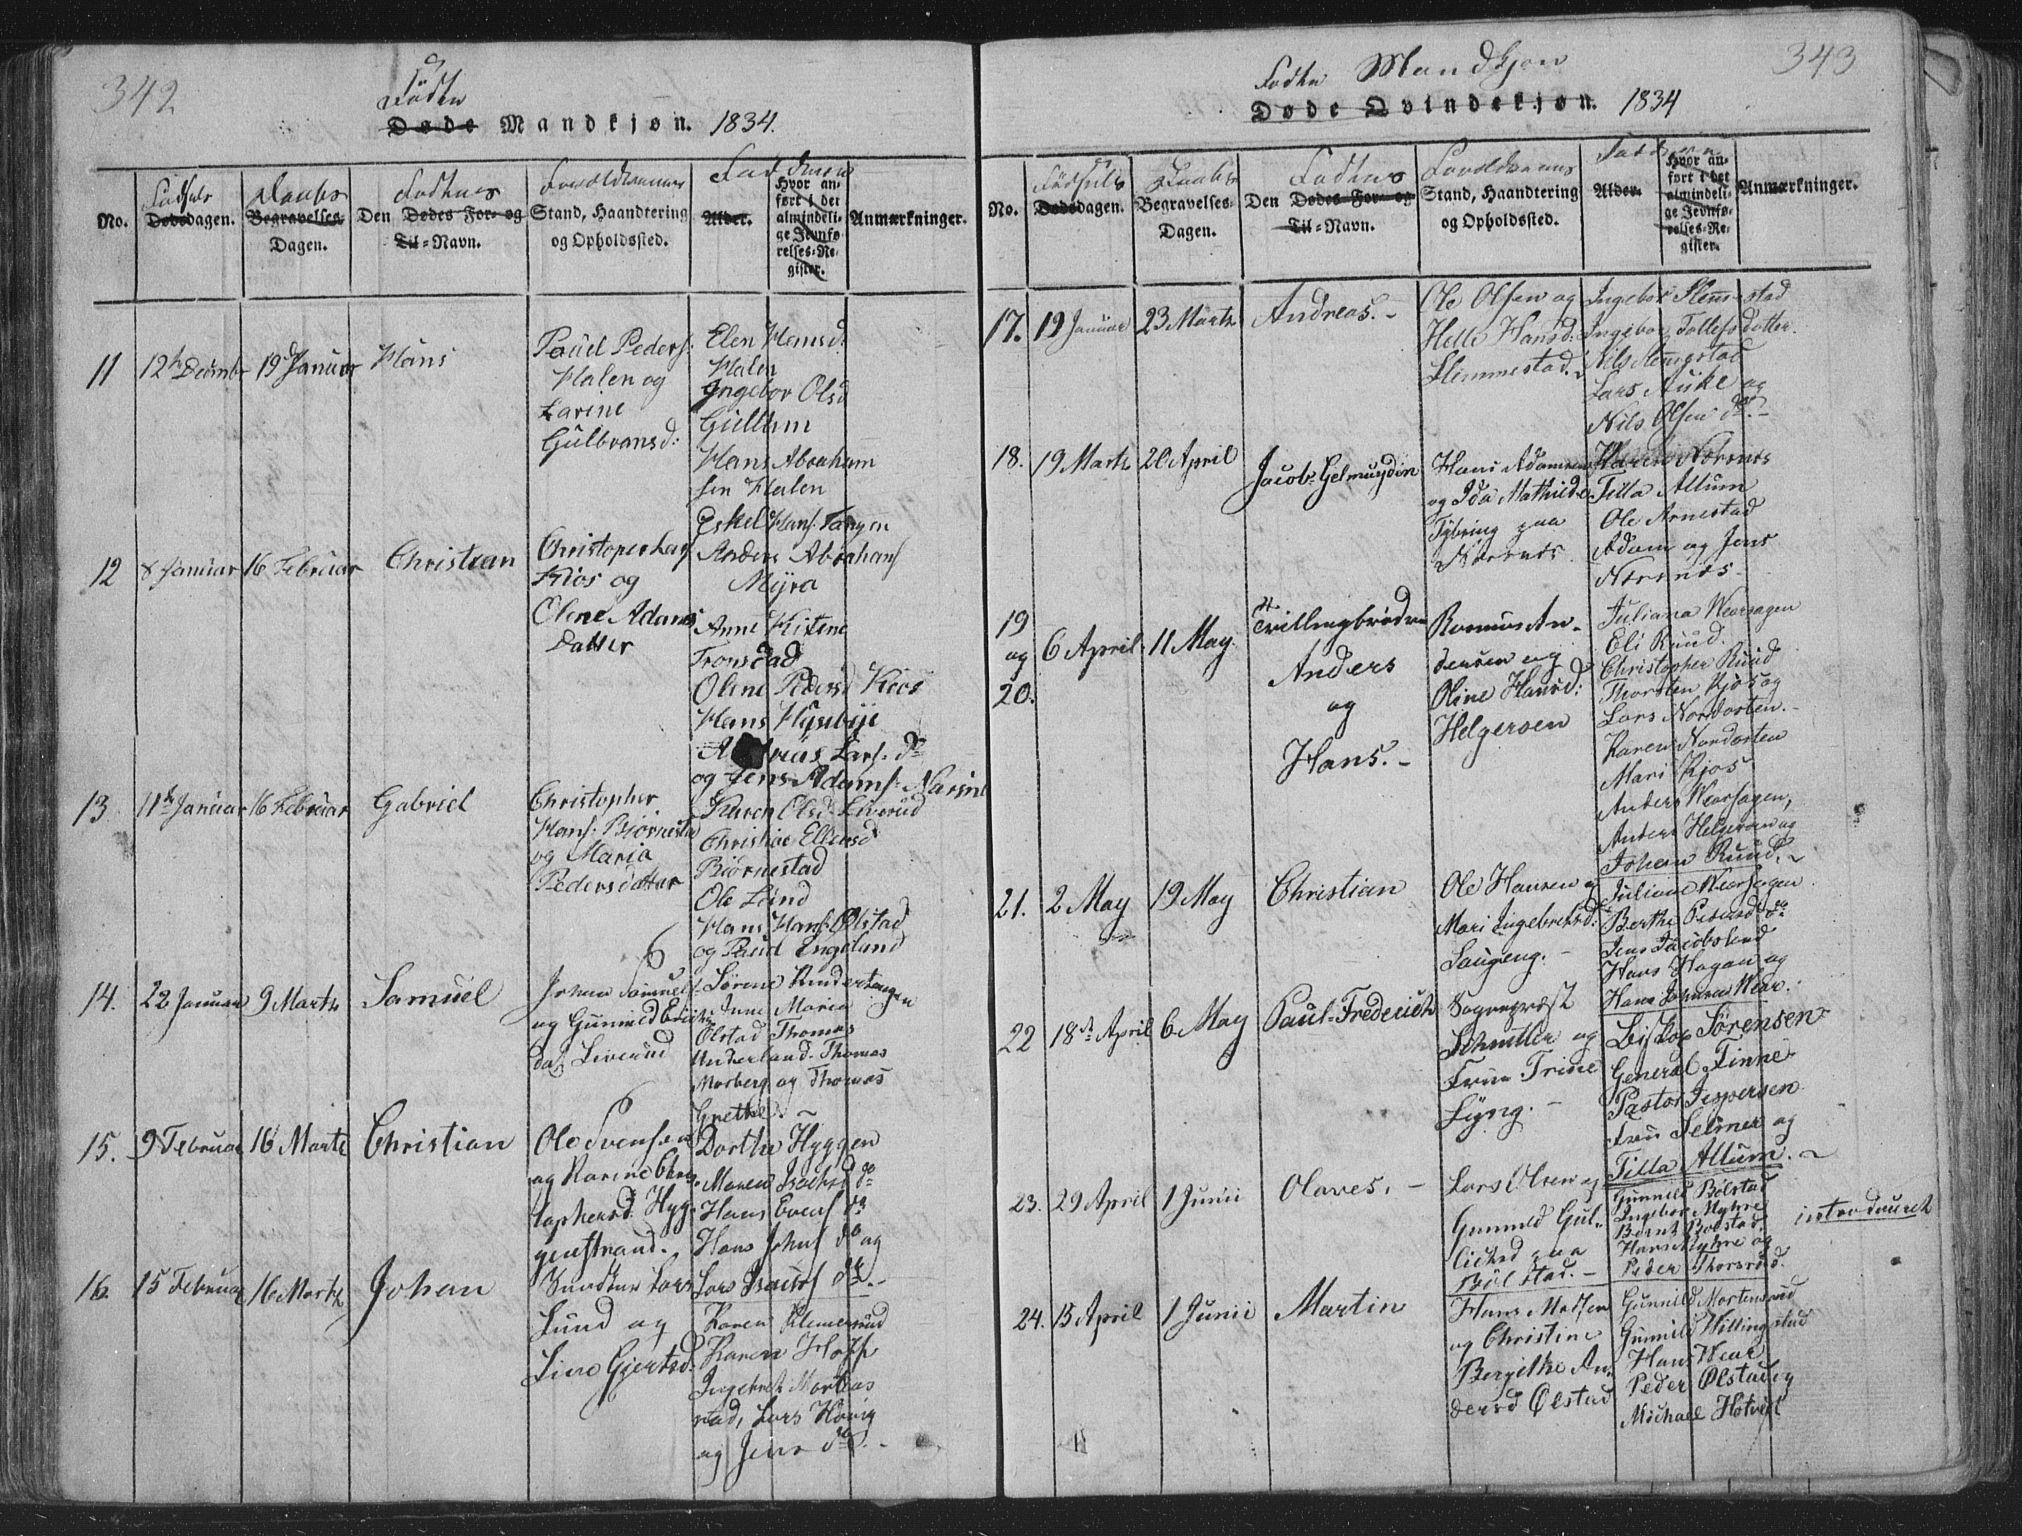 342
Fødte
Døde Mandkjøn. 1834.
No.
Fødsels
Dødsdagen.
Daabs
Begravelses-
Dagen.
Fødtes
Den Dødes For- og
Til-Navn.
Forældrenes
Stand, Haandtering
og Opholdssted.
Fadderne
Alder.
Hvor an-
ført i det
almindeli-
ge Jevnfø-
relses-Re-
gister.
Anmærkninger.
11
19 Januar
Hans
Paul Peders:
Halen og
Karine
Gulbransd:
Elen Hansd:
Halen
Ingebor Olsd
Gullum
Hans Abraham
sen Halen
Eskel Hans: Tangen
Anders Abrahams
Myra
12
8 Januar
16 Februar
Christian
Christopher Lars
Kios og
Olene Adams
Datter
Anne
Tronstad
Olene Pedersd Kios
Hans Hysebye
Lars. do
og Jens Adams:
13.
11te Januar
16 Februar
Gabriel
Christopher
Hans: Biørnesta
og Maria
Pedersdatter
Karen Olsd Liverud
Christine Ellensd
Biørnestad
Ole Lund
Hans Hans: Ølstad
og Paul Engelund
14.
22 Januar
9 Marts
Samuel
Johan Samuel
og Gunnild Erichs
dat Liverud
Sørene Kindertangen
June Maria
Ølstad Thomas
Underland. Thomas
Morberg og Thomas
Grethe. ~
15.
9 Februar
16 Marts
Christian
Ole Svensen
og Karine Chris
tophersd: Hyg-
genstrand.
Dorthe Hyggen
Maren Isachsd do
Hans Evens do
Hans Johns do og
Lars Isachs do.-
16.
15 Februar
16 Marts
Johan
Snedker Lars
Lund og
Line Gjertsd:
Karen Klemetsrud
Karen Hoff
Ingebret Mortens
rud, Lars Høvig
og Jens do.
343
Fødte Mandkjøn
Døde Qvindekjøn. 1834
No.
Fødsels
Dødsdagen.
Daabs
Begravelses-
Dagen.
Fødtes
Den Dødes For- og
Til-Navn.
Forældrenes
Stand, Haandtering
og Opholdssted.
Fadderne
Alder.
Hvor an-
ført i det
almindeli-
ge Jevnfø-
relses-Re-
gister.
Anmærkninger.
17.
19 Januar
23 Marts
Andreas. -
Ole Olsen og
Helle Hansd:
Slemmestad.
Ingebor Slemmestad
Ingebor Tollefsdotter.
Nils Slemmestad
Lars Auke og
Nils Olsen do. -
18.
19 Marts
20 April
Jacob Gelmuyden
Hans Adamsen
og Ida Mathilde
Tybring paa
Nærsnæs
Karen Nærsnes
Tilla Allum
Ole Arnestad
Adam og Jens
Nærsnæs.
19
og
20.
6 April.
11 May.
Tvillingbrødre
Anders
og
Hans. -
Rasmus An-
dersen og
Oline Hansd:
Helgersen
Juliana Wearhagen
Eli Ruud.
Christopher Ruud
Thorsten Kjos og
Lars Nordosten. -
Karen Nordosten
Mari Kjos
Anders Wearhagen,
Anders Helgersen og
Johan Ruud. ~
21.
2 May
19 May
Christian
Ole Hansen og
Mari Ingebretsd:
Laugeng. -
Juliane Wearhagen
Berthe Pedersd do
Jens Jacobslund
Hans Hagan og
Hans Johnsen Wear.
22
18de April
6 May
Paul-Frederich
Sogneprest
Schnitler og
Frue Trine
Lyng. -
Biskop Sørensen
General Finne
Pastor Jespersen
Fru Selmer og
Tilla Allum. ~
23.
29 April
1 Junii
Olaves. -
Lars Olsen og
Gunnild Gul-
lichsd paa
Bølstad. -
Gunnild Bølstad
Ingebor Myhre
Bernt Bølstad
Hans Myhre og
Peder Thorsrud.
introduceret
24.
13 April
1 Junii
Martin
Hans Madsen
og Christine
Bergithe An-
dersd Ølstad
Gunnild Mortensrud
Gunnild Hillingstad
Hans Wear
Peder Ølstad og
Michael Høtvet